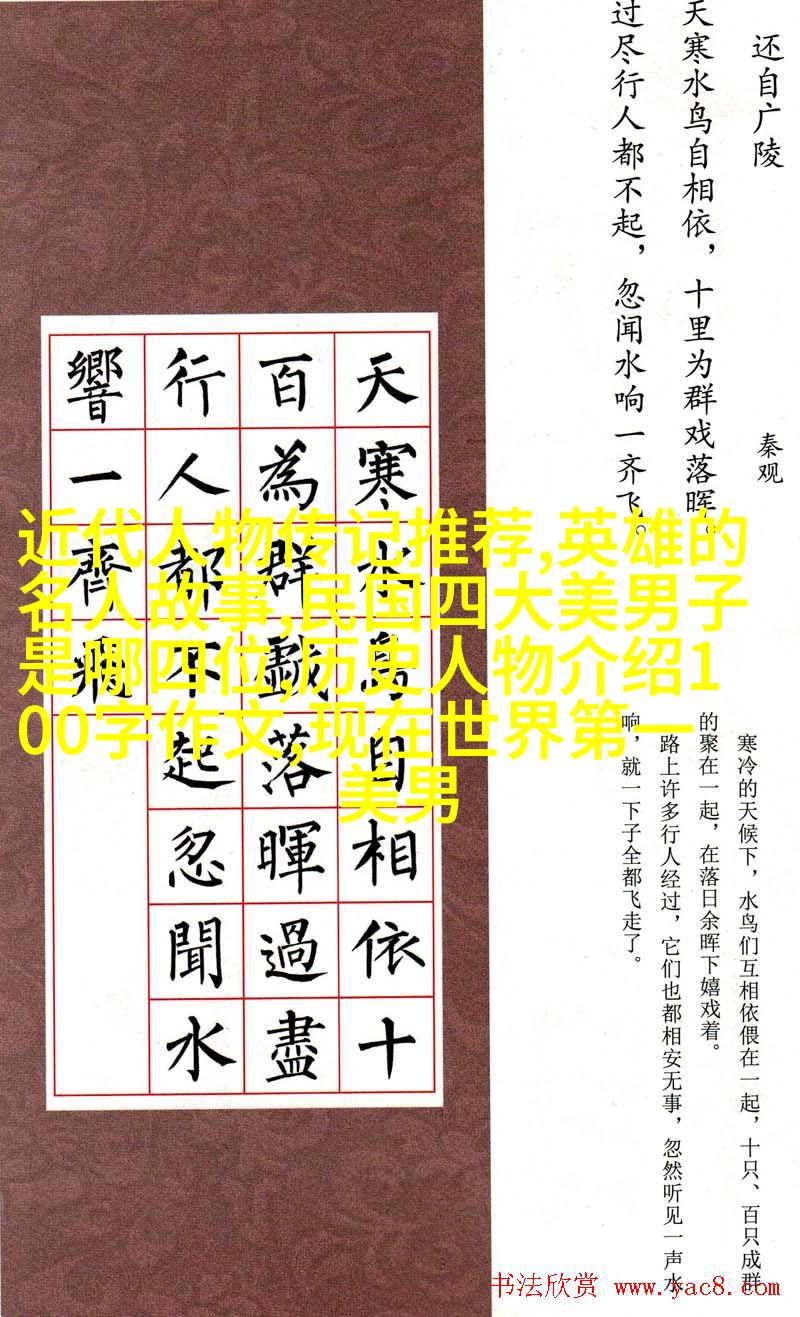 还自广陵
秦观
天寒水鸟自相依，十里为群戏落晖。
过尽行人都不起，忽闻水响一齐飞。
天寒水鳥自相依十
百為群戲落暉過盡
行人都不起忽聞水
響一齊飛
近代人物传记推荐,英雄的
名人故事,民国四大美男子
是哪四位,历史人物介绍1
00字作文,现在世界第一
美男
寒冷的天候下，水鸟们互相依偎在一起，十只、百只成群
的聚在一起，在落日余晖下嬉戏着。
路上许多行人经过，它们也都相安无事，忽然听见一声水
响，就一下子全都飞走了。
书法欣赏 www.yac8.com